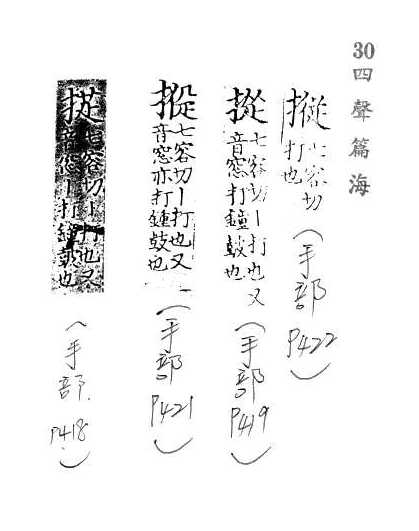 30 四聲篇海
摐 七容切打也
(手部 P422)
摐 七容切丨打也又音窓打鐘鼓也
(手部 P419)
摐 七容切丨打也又音窓亦打鍾鼓也
(手部 P421)
七容切丨打也又音窓丨打鐘鼓也
(手部 P418)